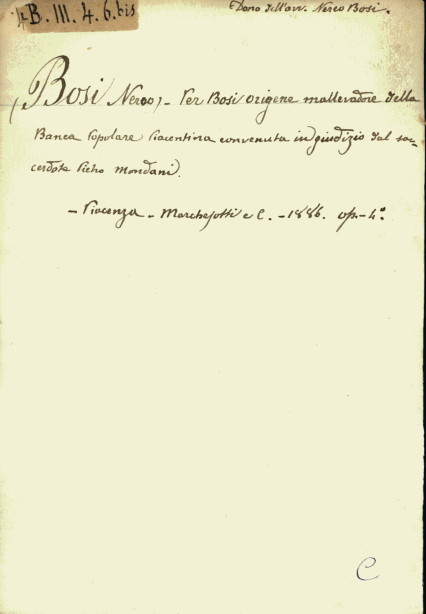 4. B. III. 4. 6. bis
Dono dell'avv. Nereo Bosi.
(Bosi Nereo) - Per Bosi Origene mallevadore della
Banca Popolare Piacentina convenuta in giudizio dal sa-
cerdote Pietro Mondani.
- Piacenza - Marchesotti e C. - 1886. op. - 4°.
C